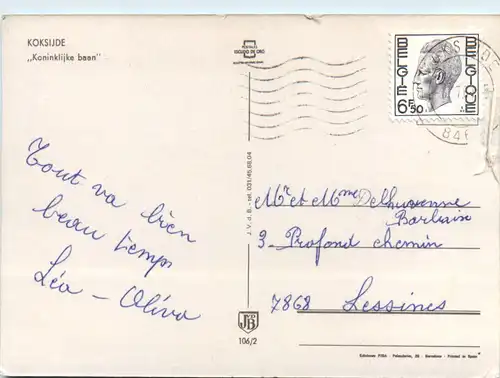 KOKSIJDE
„Koninklijke baan"
POSTALES
ESCUDO DE ORO
BELGIE
BELGIQUE
6F50
KSIJDE
846
Tout va bien
beau temps
Léa - Oliva
J. V. d. B. - tel. 031/45.68.04
Mr et Mme Delhuvenne
Barbain
3 - Profond chemin
7868 Lessines
JVDB
106/2
Ediciones FISA - Palaudarias, 26 - Barcelona - Printed in Spain